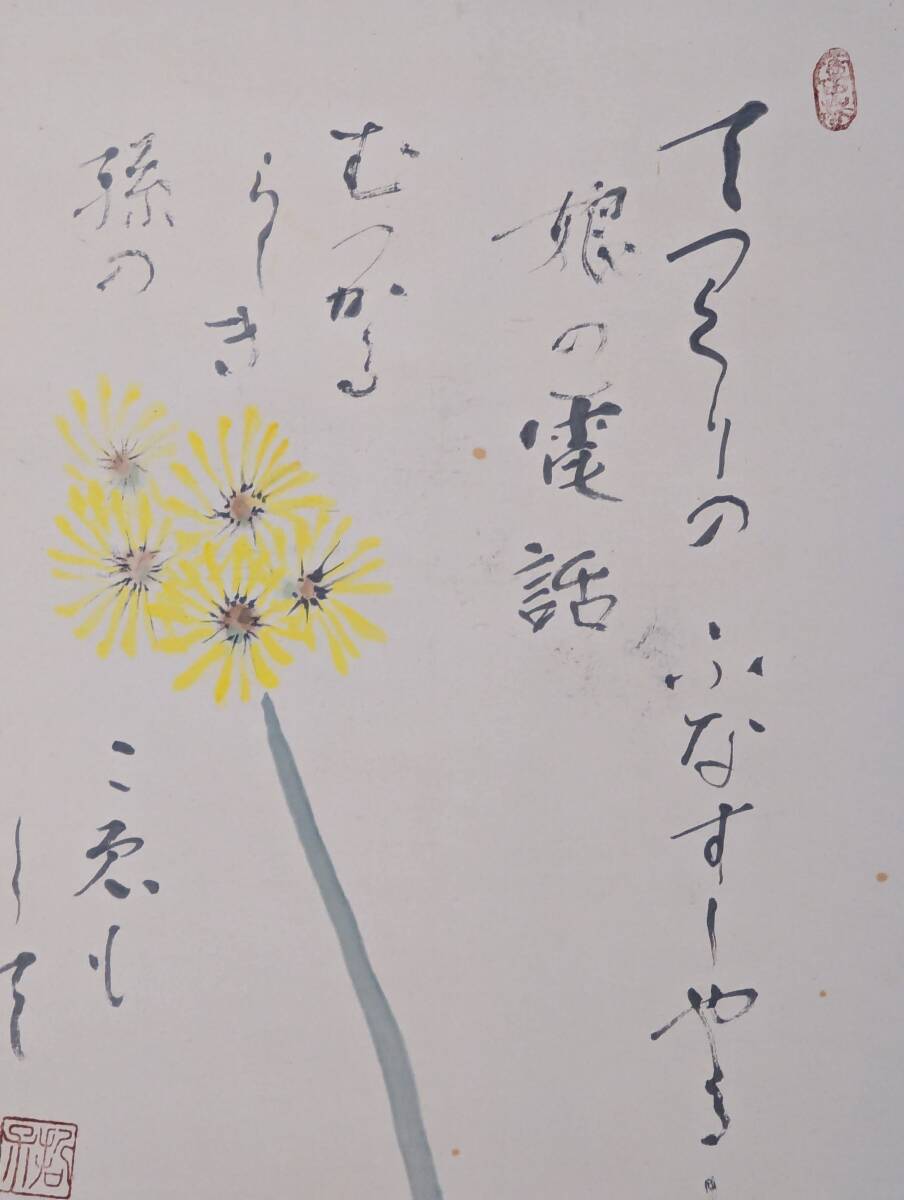 てつくりの ふなすしやる
娘の電話
むつかる
らしき
孫の
こ恵も
して